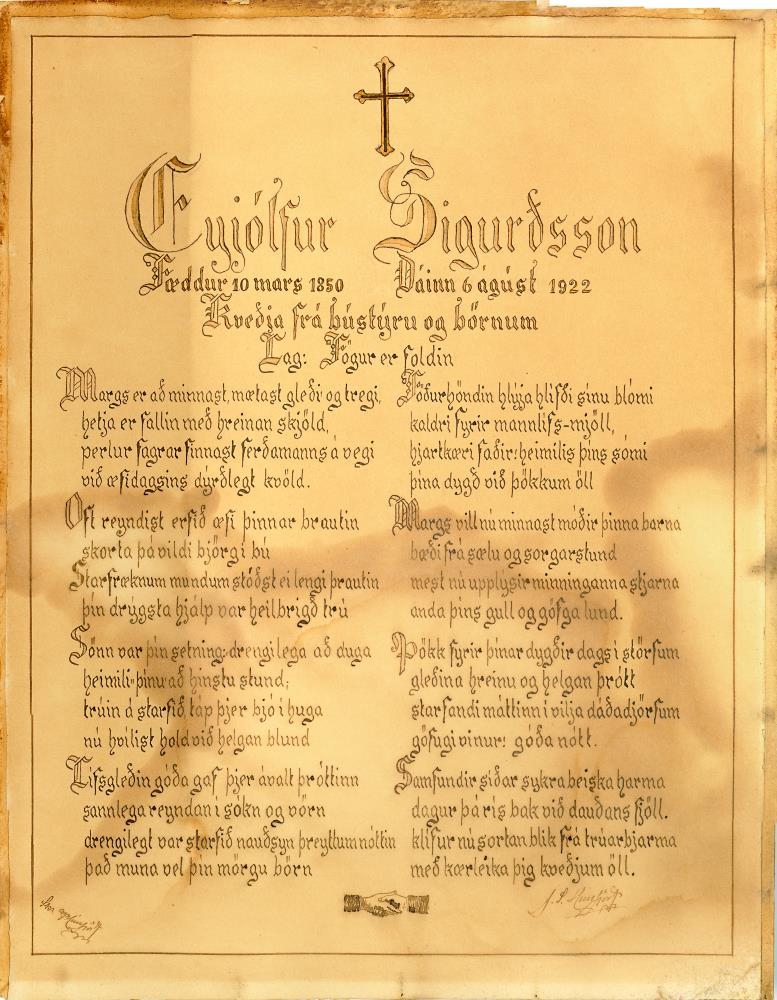 Eyjólfur Sigurðsson
Fæddur 10 mars 1850 Dáinn 6 ágúst 1922
Kveðja frá bústýru og börnum
Lag: Fögur er foldin
Margs er að minnast, mætast gleði og tregi,
hetja er fallin með hreinan skjöld,
perlur fagrar finnast ferðamanns á vegi
við æfidagsins dýrðlegt kvöld.
Oft reyndist erfið æfi þinnar brautin
skorta þá vildi björg í bú
Starfræknum mundum stóðst ei lengi þrautin
þín drýgsta hjálp var heilbrigð trú
Sönn var þín setning: drengilega að duga
heimili þínu að hinstu stund;
trúin á starfið, táp þjer bjó í huga
nú hvílist hold við helgan blund
Lífsgleðin góða gaf þjer ávalt þróttinn
sannlega reyndan í sókn og vörn
drengilegt var starfið nauðsyn þreyttum nóttin
það muna vel þín mörgu börn
Föðurhöndin hlýja hlífði sínu blómi
kaldri fyrir mannlífs-mjöll,
hjartkæri faðir: heimilis þíns sómi
þína dygð við þökkum öll
Margs vill nú minnast móðir þinna barna
bæði frá sælu og sorgarstund
mest nú upplýsir minninganna stjarna
anda þíns gull og göfga lund.
Þökk fyrir þínar dygðir dags í störfum
gleðina hreinu og helgan þrótt
starfandi máttinn í vilja dáðadjörfum
göfugi vinur! góða nótt.
Samfundir síðar sykra beiska harma
dagur þá rís bak við dauðans fjöll.
klífur nú sortan blik frá trúarbjarma
með kærleika þig kveðjum öll.